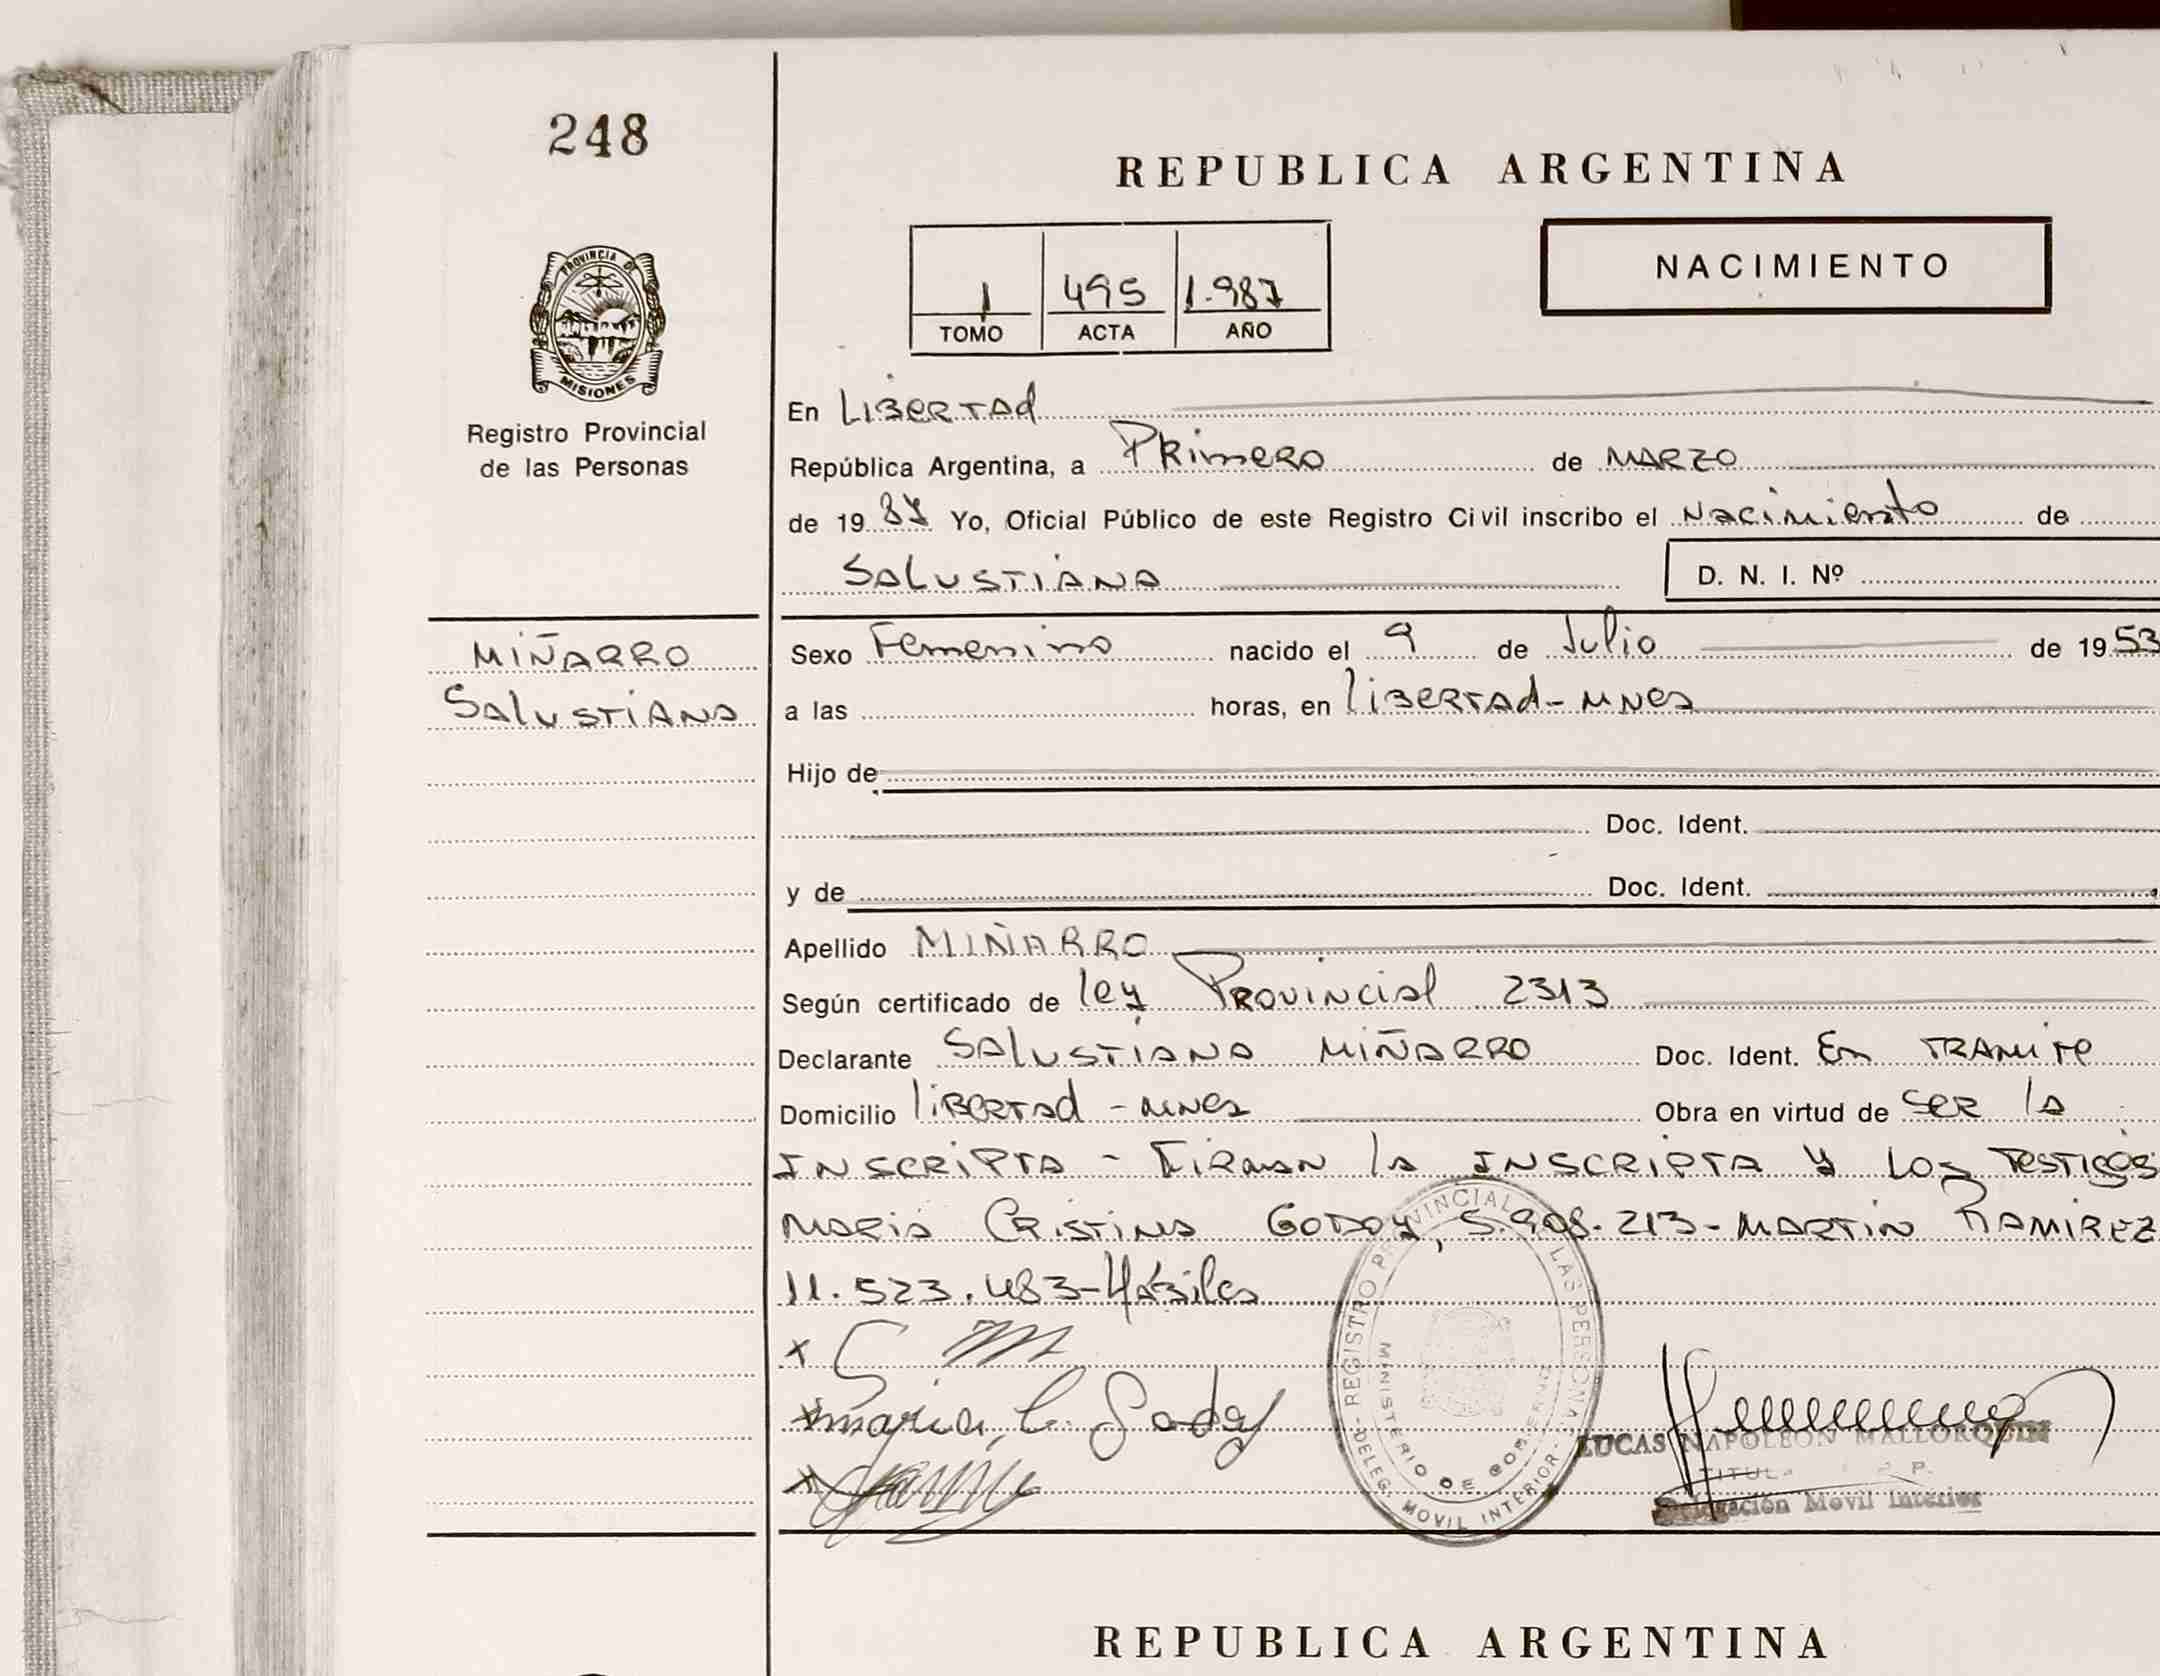 248
REPUBLICA ARGENTINA
PROVINCIA DE
MISIONES
Registro Provincial
de las Personas
NACIMIENTO
1 495 1.987
TOMO ACTA AÑO
En Libertad
República Argentina, a Primero de Marzo
de 1987 Yo, Oficial Público de este Registro Civil inscribo el Nacimiento de
Salustiana D. N. I. Nº
MIÑARRO
Salustiana
Sexo Femenino nacido el 9 de Julio de 1953
a las horas, en Libertad - Mnes
Hijo de
Doc. Ident.
y de Doc. Ident.
Apellido MIÑARRO
Según certificado de Ley Provincial 2313
Declarante Salustiana Miñarro Doc. Ident. En tramite
Domicilio Libertad - Mnes Obra en virtud de ser la
inscripta - Firman la inscripta y los testigos
Maria Cristina Godoy, 5.908.213 - Martin Ramirez
11.523.483 - Hábiles
x S M
x maria C. Godoy
x
REGISTRO PROVINCIAL LAS PERSONAS
MINISTERIO DE GOBIERNO
DELEG. MOVIL INTERIOR
LUCAS NAPOLEON MALLORQUIN
Delegación Movil Interior
REPUBLICA ARGENTINA